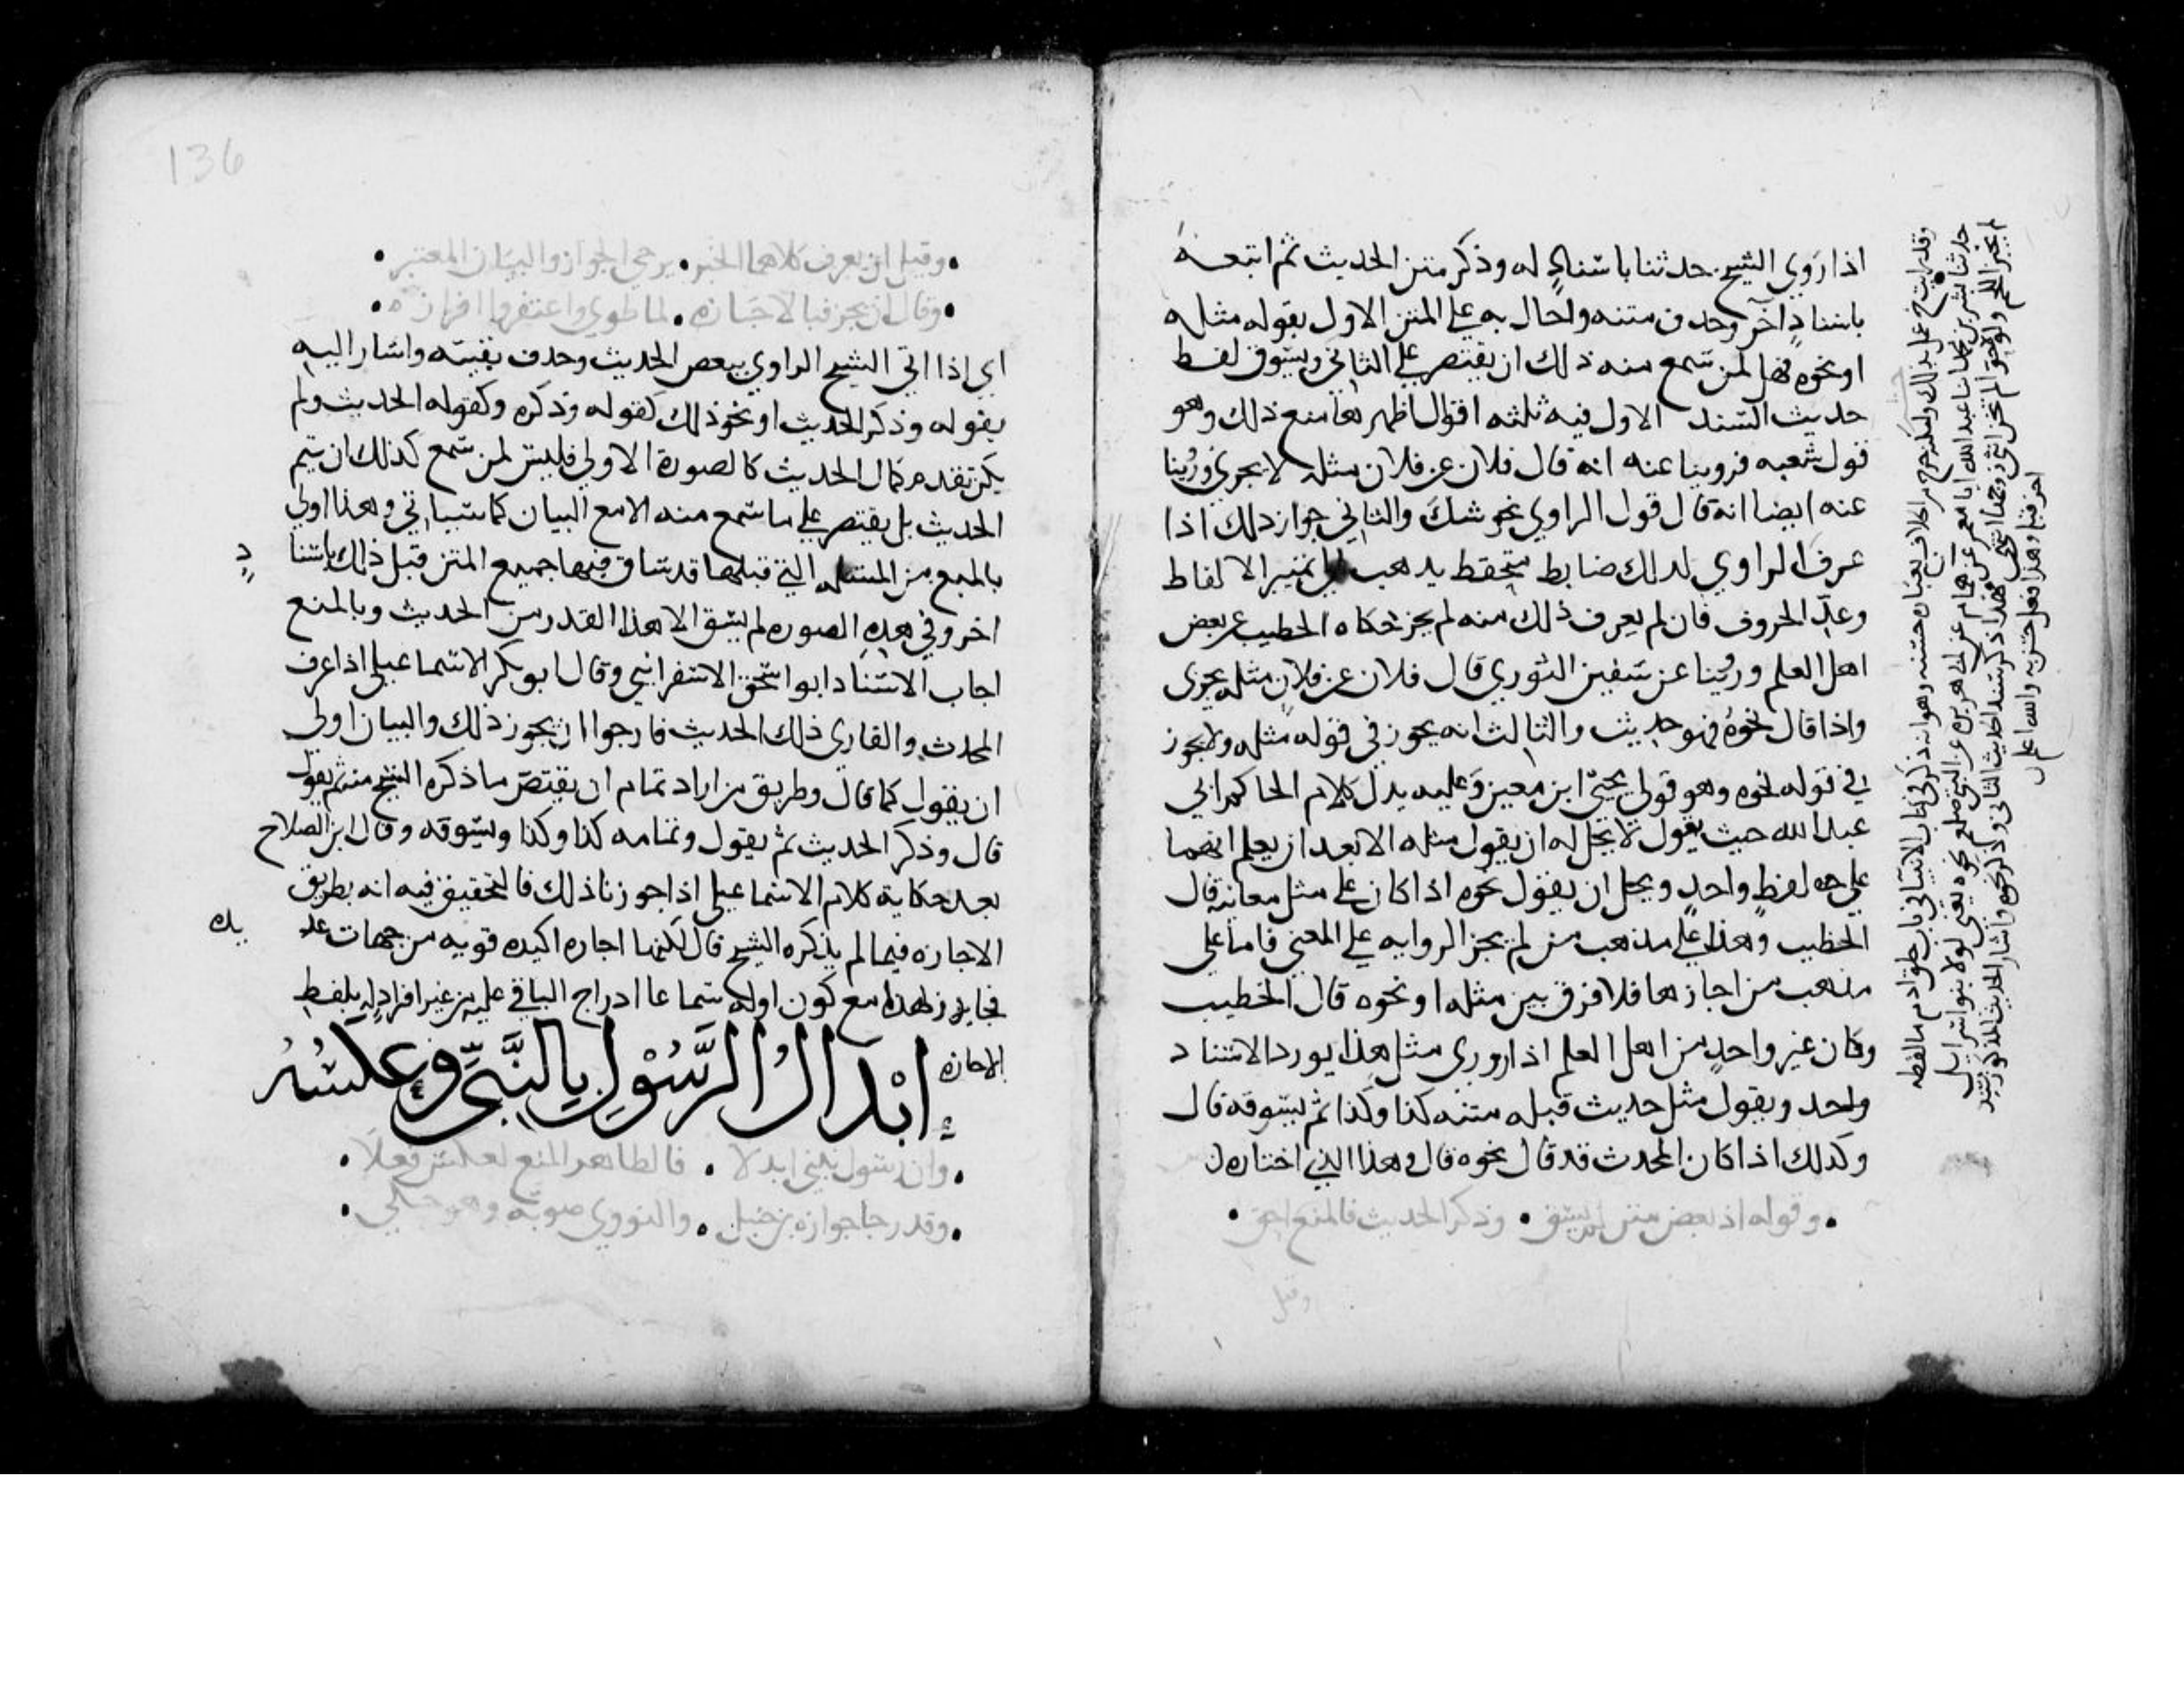 اذا روي الشيخ حدثنا باسناد له وذكر متن الحديث ثم اتبعه
باسناد آخر وحدف متنه واحال به علي المتن الاول بقوله مثله
او نحوه فهل لمن سمع منه ذلك ان يقتصر علي الثاني ويسوق لفظ
حديث السند الاول فيه ثلثه اقوال اظهرها منع ذلك وهو
قول شعبه فروينا عنه انه قال فلان عن فلان مثله لا يجزي وروينا
عنه ايضا انه قال قول الراوي نحو شك والثاني جواز ذلك اذا
عرف الراوي لدلك ضابط متحفظ يدهب الي تمييز الالفاظ
وعد الحروف فان لم يعرف ذلك منه لم يجز حكاه الخطيب عن بعض
اهل العلم وروينا عن سفين الثوري قال فلان عن فلان مثله يجزي
واذا قال نحوه فهو حديث والثالث انه يجوز في قوله مثله ولا يجوز
في قوله نحوه وهو قول يحيى ابن معين وعليه يدل كلام الحاكم ابي
عبد الله حيث يقول لا يحل له ان يقول مثله الا بعد ان يعلم انهما
علي لفظ واحد ويحل ان يقول نحوه اذا كان علي مثل معانيه قال
الخطيب وهذا علي مذهب من لم يجز الروايه علي المعني فاما علي
مذهب من اجازها فلا فرق بين مثله او نحوه قال الخطيب
وكان غير واحد من اهل العلم اذا روري مثل هذا يورد الاسناد
واحد ويقول مثل حديث قبله متنه كذا وكذا ثم يسوقه قال
وكدلك اذا كان المحدث قد قال نحوه قال وهذا الذي اختاره
وقوله اذ بعض متن لم يسق • وذكر الحديث فالمنع احق •
وقيل
• وقيل ان يعرف كلاهما الخبر • يرجي الجواز والبيان المعتبر •
• وقال ان يجز فبالاجازه • لما طوي واغتفروا افرازه •
اي اذا اتي الشيخ الراوي ببعص الحديث وحدف بقيته واشار اليه
بقوله وذكر الحديث او نحو ذلك كقوله وذكره وكقوله الحديث ولم
يكن تقدم كمال الحديث كالصورة الاولي فليس لمن سمع كذلك ان يتم
الحديث بل يقتصر علي ما سمع منه الا مع البيان كما سياتي وهذا اولي
بالمنع من المسئله التي قبلها قد ساق فيها جميع المتن قبل ذلك باسنا
د
اخر وفي هده الصوره لم يسق الا هذا القدر من الحديث وبالمنع
اجاب الاستاد ابو اسحق الاسفرايني وقال ابو بكر الاسماعيلي اذا عرف
المحدث والقاري ذلك الحديث فارجوا ان يجوز ذلك والبيان اولي
ان يقول كما قال وطريق من اراد تمام ان يقتص ما ذكره الشيخ منه ثم يقول
قال وذكر الحديث ثم يقول وتمامه كذا وكذا ويسوقه وقال ابن الصلاح
بعد حكاية كلام الاسماعيلي اذا جوزنا ذلك فالتحقيق فيه انه بطريق
الاجازه فيما لم يذكره الشيخ قال لكنها اجازه اكيده قويه من جهات عد
يده
فجاز لهذا مع كون اوله سماعا ادراج الباقي عليه من غير افراد له بلفظ
الاجازه
إبْدالُ الرَّسُوْلِ بِالنَّبيِّ وَعَكسُهُ
• وان رسول بنبي ابدلا • فالظاهر المنع لعكس فعلا •
• وقد رجا جوازه بن حنبل • والنووي صوبه وهو جلي •